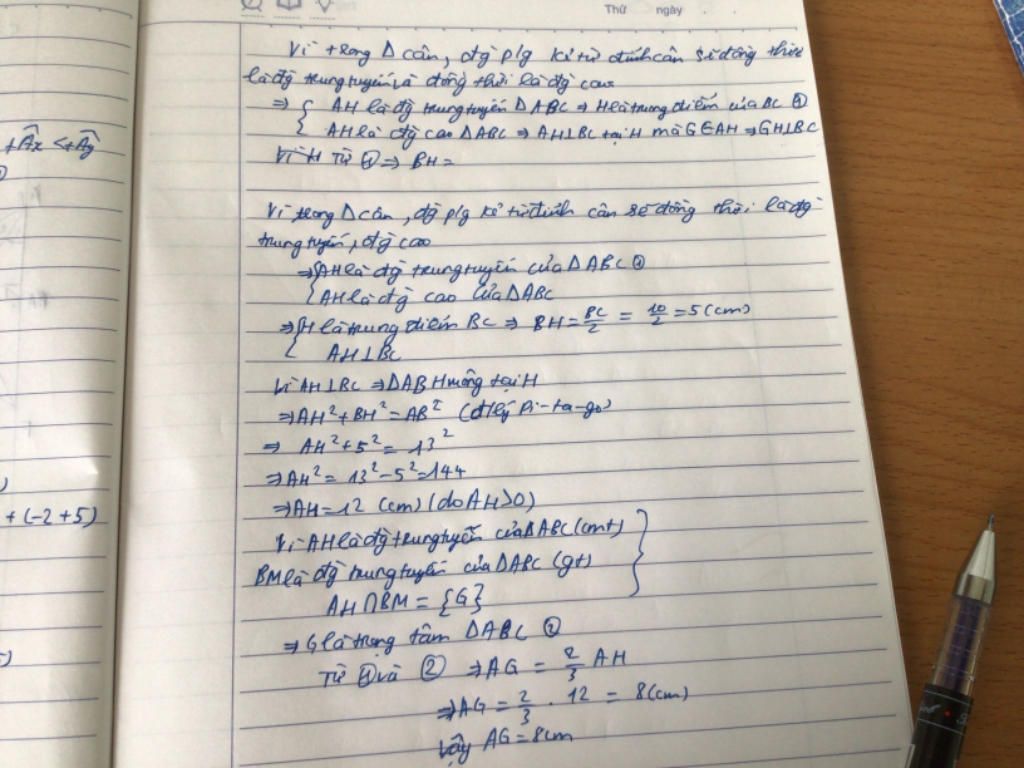 Thứ ngày
Vì trong Δ cân, đg p/g kẻ từ đỉnh cân sẽ đồng thời
là đg trung tuyến và đồng thời là đg cao
⇒ { AH là đg trung tuyến ΔABC ⇒ H là trung điểm của BC ①
AH là đg cao ΔABC ⇒ AH⊥BC tại H mà G∈AH ⇒ GH⊥BC
+Âx <+Ây
Vì H Từ ① ⇒ BH =
Vì trong Δ cân, đg p/g kẻ từ đỉnh cân sẽ đồng thời là đg
trung tuyến, đg cao
⇒ { AH là đg trung tuyến của ΔABC ①
AH là đg cao của ΔABC
⇒ { H là trung điểm BC ⇒ BH = BC/2 = 10/2 = 5 (cm)
AH⊥BC
Vì AH⊥BC ⇒ ΔABH vuông tại H
⇒ AH² + BH² = AB² (đ/lý Pi-ta-go)
⇒ AH² + 5² = 13²
⇒ AH² = 13² - 5² = 144
⇒ AH = 12 (cm) (do AH>0)
+ (-2+5)
Vì AH là đg trung tuyến của ΔABC (cmt)
BM là đg trung tuyến của ΔABC (gt)
AH∩BM = {G}
⇒ G là trọng tâm ΔABC ②
Từ ① và ② ⇒ AG = 2/3 AH
⇒ AG = 2/3 . 12 = 8 (cm)
Vậy AG = 8cm